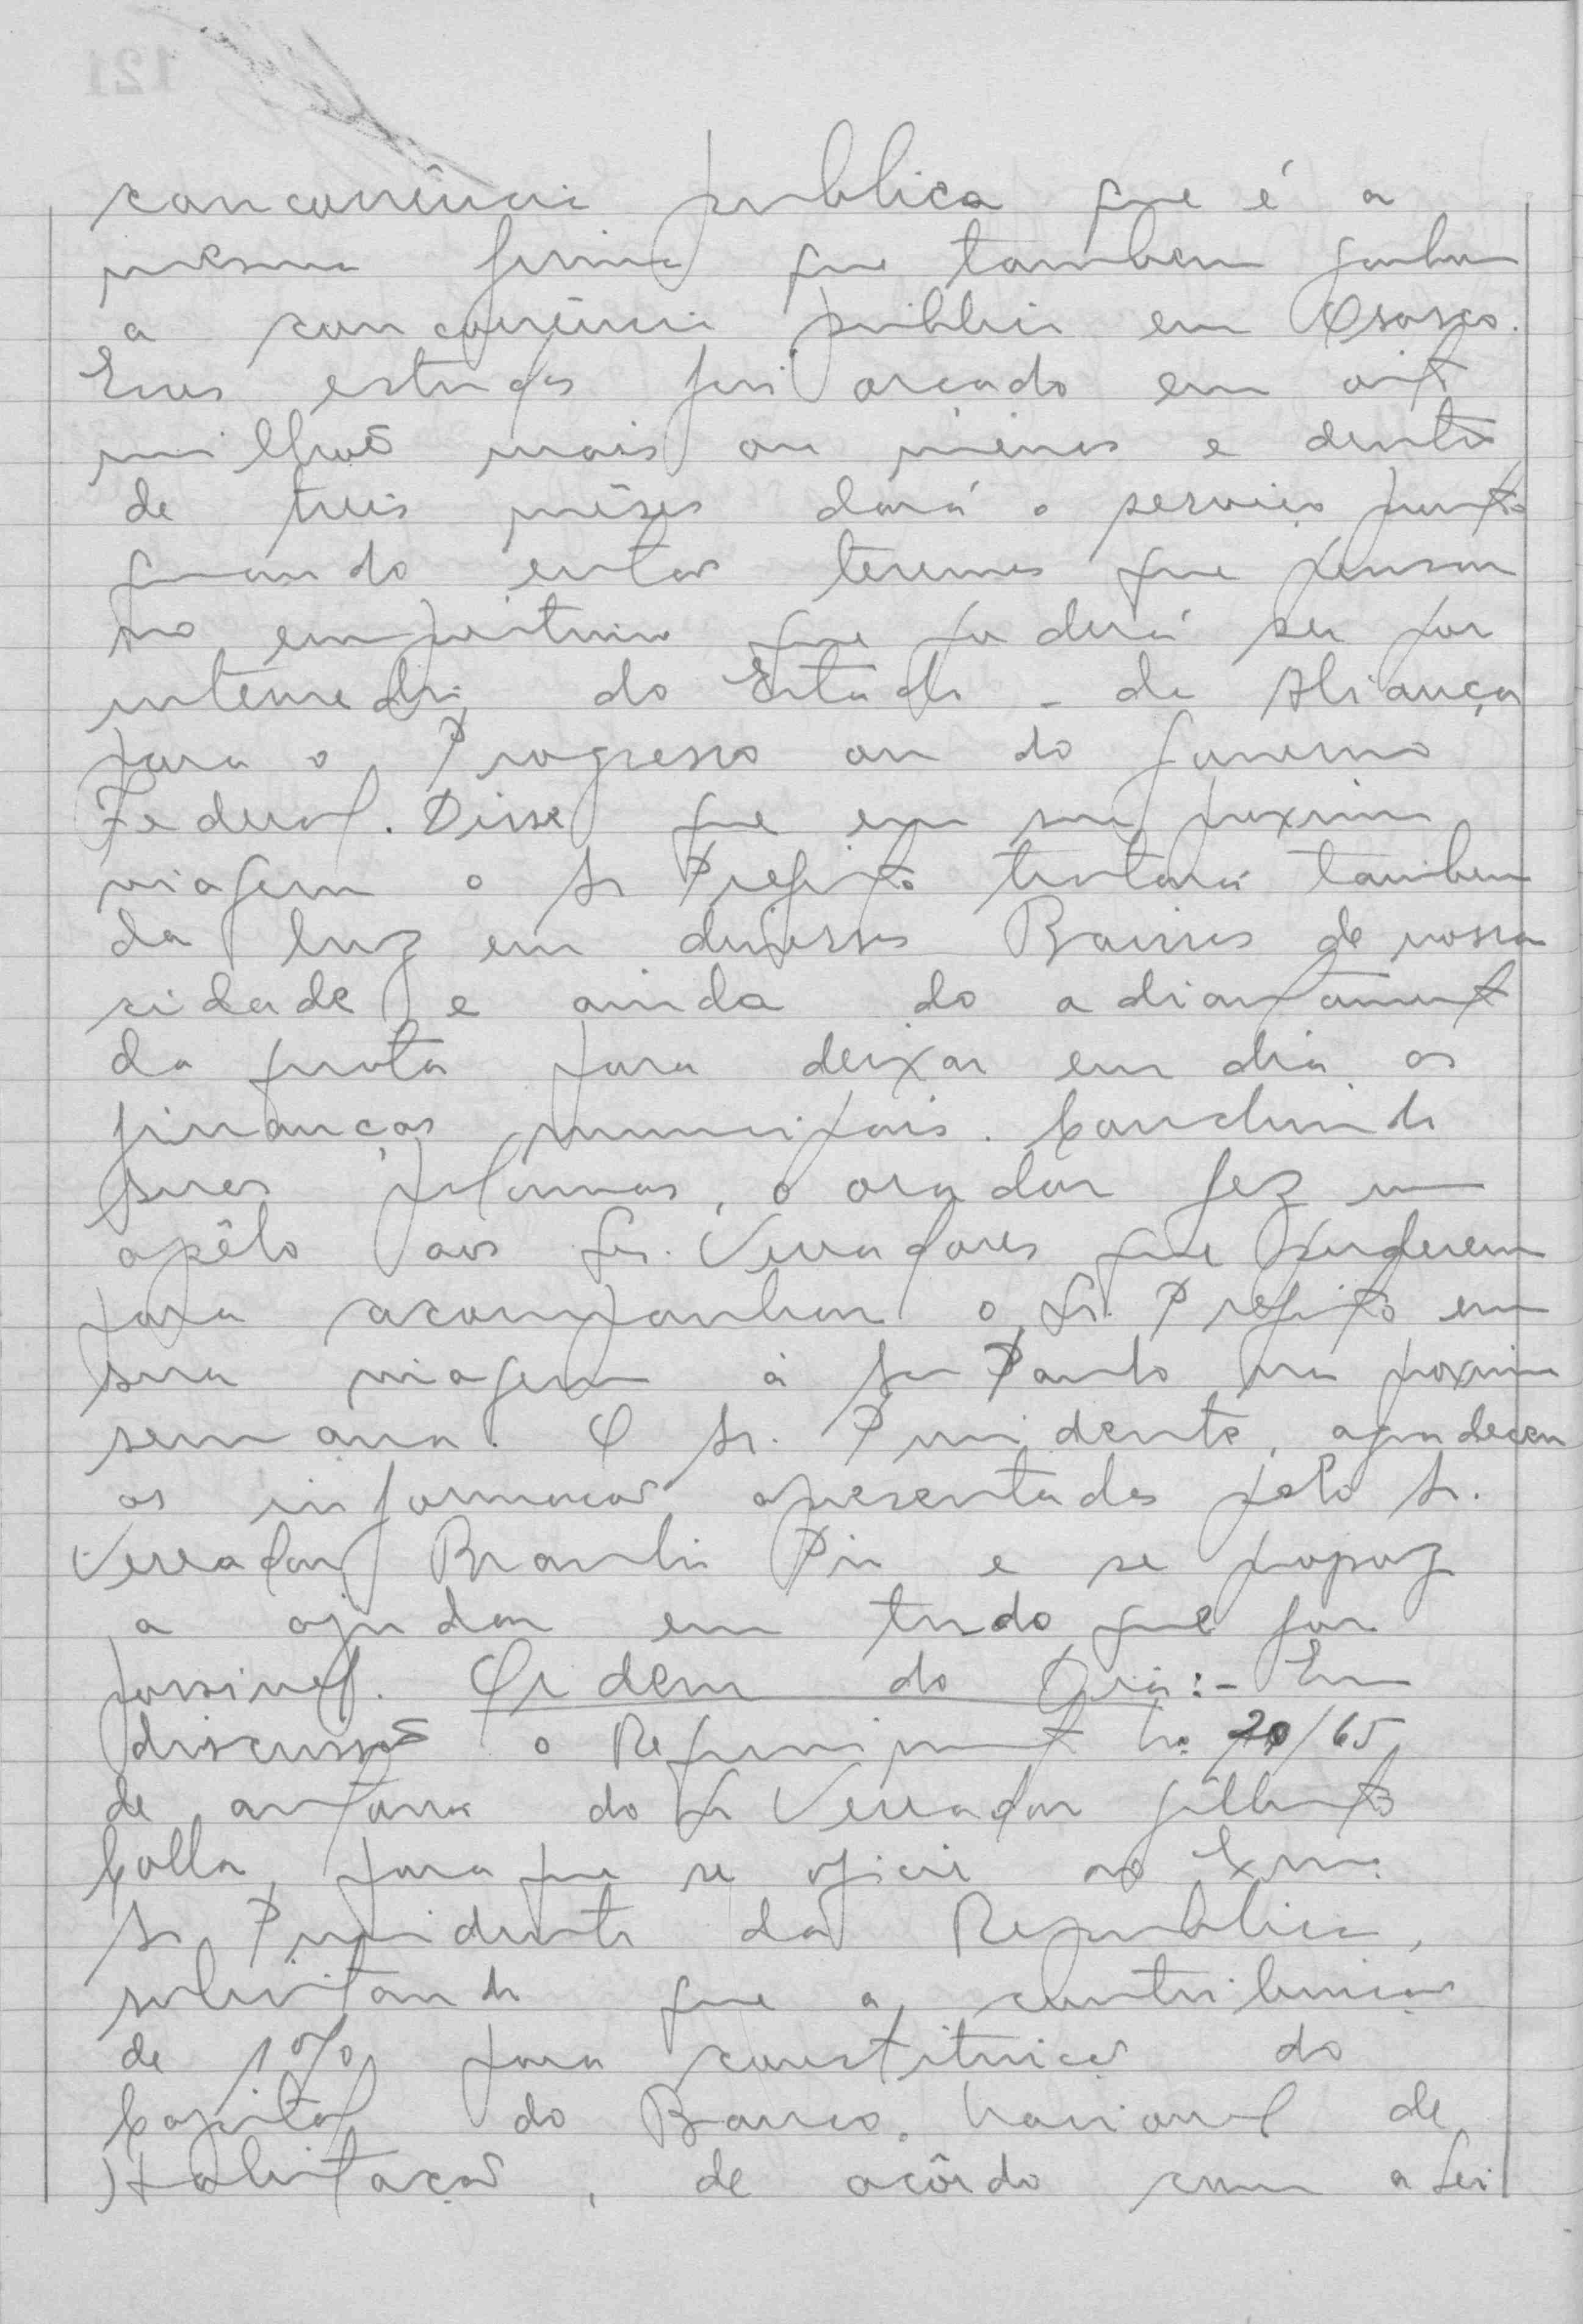 concorrência publica que é a
mesma firma que tambem ganhou
a concorrência publica em Osasco.
Esses estudos foi orçado em oito
milhões mais ou menos e dentro
de treis mêses dará o serviço pronto
quando então teremos que pensar
no emprestimo que poderá ser por
intermedio do Estado - da Aliança
para o Progresso ou do Governo
Federal. Disse que em sua proxima
viagem o Sr Prefeito tratará tambem
da luz em diversos Bairros de nossa
cidade e ainda do adiantamento
da quota para deixar em dia as
finanças municipais. Concluindo
suas palavras, o orador fez um
apêlo aos Srs. Vereadores que puderem
para acompanhar o Sr. Prefeito em
sua viagem à São Paulo na proxima
semana. O Sr. Presidente, agradeceu
as informações apresentadas pelo Sr.
Vereador Braulio Pio e se propoz
a ajudar em tudo que for
possivel. Ordem do Dia:- Em
discussão o Requerimento No 20/65
de autoria do Sr Vereador Gilberto
Colla, para que se oficie ao Exmo.
Sr Presidente da Republica,
solicitando que a contribuição
de 1% para constituição do
Capital do Banco Nacional de
Habitação, de acôrdo com a Lei
121